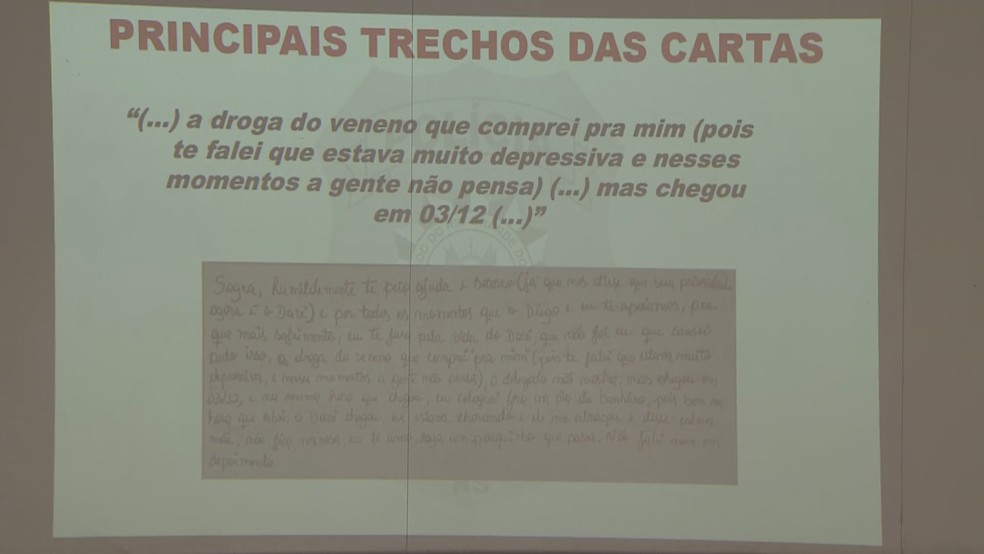 PRINCIPAIS TRECHOS DAS CARTAS
“(...) a droga do veneno que comprei pra mim (pois
te falei que estava muito depressiva e nesses
momentos a gente não pensa) (...) mas chegou
em 03/12 (...)”
Sogra, humildemente te peço ajuda e socorro (já que nos disse que sua prioridade
agora é o Davi) e por todos os momentos que o Diego e eu te apoiamos, pra
que mais sofrimento, eu te juro pela vida do Davi, que não foi eu que causei
tudo isso, a droga do veneno que comprei pra mim (pois te falei que estava muito
depressiva, e nesses momentos a gente não pensa), o delegado não mostra, mas chegou em
03/12, e na mesma hora que chegou, eu coloquei fora na pia do banheiro, pois bem na
hora que abri, o Davi chegou, eu estava chorando e ele me abraçou e disse calma
mãe, não fica nervosa, eu te amo, seja um que passa. Não falei nem em
depoimento.